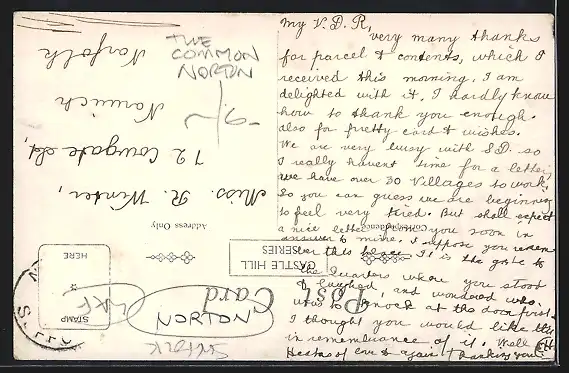 My V.D.R,
very many thanks
for parcel & contents, which I
received this morning. I am
delighted with it, I hardly know
how to thank you enough.
also for pretty card & wishes.
We are very busy with S.D. so
I really havent time for a letter,
we have over 30 Villages to work,
So you can guess we are beginning
to feel very tired. But shall expect
a nice letter from you soon in
answer to mine. I suppose you remem
ber this It is the gate to
the Quarters where you stood
& laughed, and wondered who
was to knock at the door first.
I thought you would like this
in remembrance of it. Well
Heaps of love & again thanking you.
Miss. R. Winter,
72 Cowgate St,
Norwich
Norfolk
THE
COMMON
NORTON
Address Only
Correspondence
CASTLE HILL
SERIES
Post Card
STAMP
HERE
NORTON
Suffolk